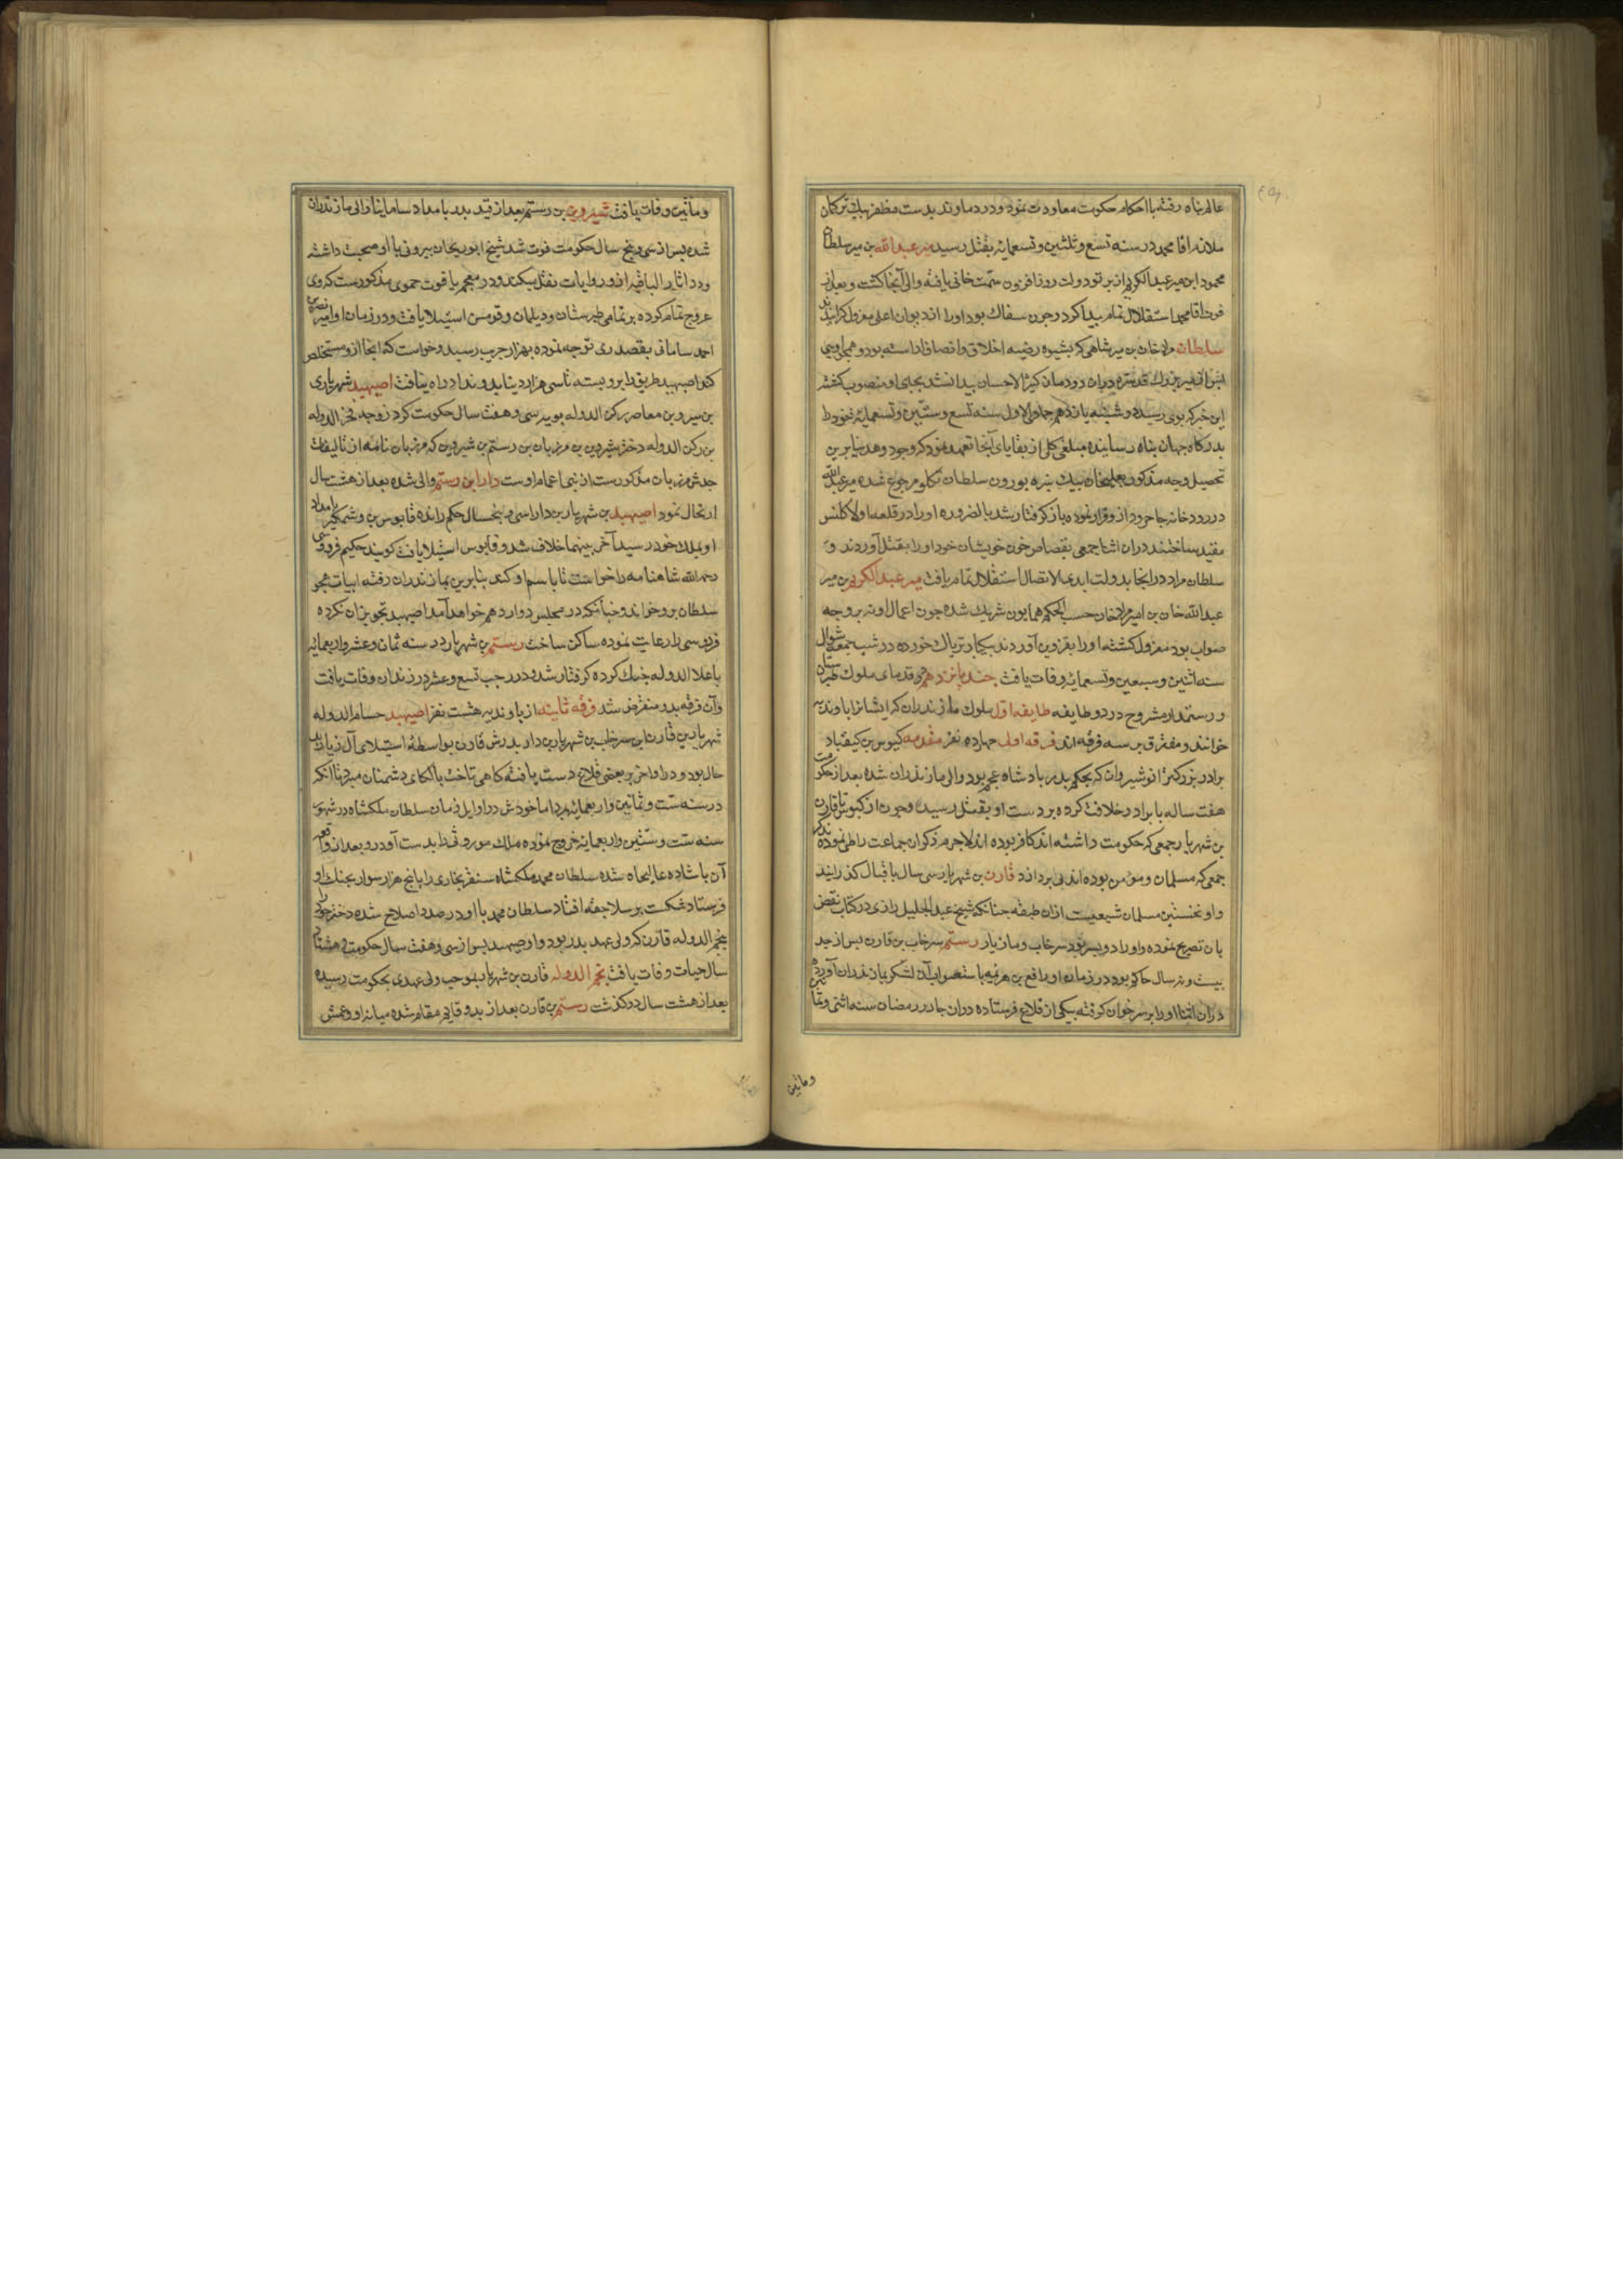 عالم پناه رفته با احکام حکومت معاودت نمود و در دماوند بدست مظفر بیك ترکمان
ملازم اقا محمد در سنه تسع و ثلثین و تسعمایه بقتل رسید میر عبد الله بن میر سلطان
محمود ابن میر عبد الکریم از پرتو دولت روز افزون سمت خانی یافته والی آنجا کشت و بعد از
فوت اقا محمد استقلال تمام پیدا کرد و چون سفاك بود او را از دیوان اعلی معزول کردانیدند
سلطان مراد خان بن میر شاهی که بشیوه رضیه اخلاق و انصاف اراسته بود و همچو اویی
این خبر که بوی رسید دوشنبه یازدهم جمادی الاول سنه تسع و ستین و تسعمایه خود را
بدرکاه جهان پناه رسانیده مبلغی کلی از بقایای آنجا تعهد نمود که وجود دهد بنابرین
تحصیل وجه مذکور بعلیخان بیك نبیره بورون سلطان تکلو مرجوع شده میر عبد الله
در رودخانه جاجرود ازو فرار نموده باز کرفتار شد بالضروره او را در قلعه اولاکلنس
مقید ساختند دران اثنا جمعی بقصاص خون خویشان خود او را بقتل آوردند و
سلطان مراد در انجا بدولت ابدی الاتصال استقلال تمام یافت میر عبد الکریم بن میر
عبد الله خان بن امیر مراد خان حسب الحکم همایون شریك شده چون اعمال او نه بر وجه
صواب بود معزول کشته او را بقزوین آوردند بیکبار تریاك خورده در شب جمعه شوال
سنه اثنین و سبعین و تسعمایه وفات یافت جند پانزدهم در قدمای ملوك طبرستان
و رستمدار مشروح در دو طایفه طایفه اول ملوك مازندران که ایشانرا باوندیه
خوانند و مفترق بر سه فرقه اند فرقه اولی چهارده نفر مقدمه کیوس بن کیقباد
برادر بزرکتر انوشیروان که بحکم پدر پادشاه عجم بود والی مازندران شده بعد از حکومت
هفت ساله با برادر خلافت کرده بر دست او بقتل رسید و چون از کیوس تا قارن
بن شهریار جمعی که حکومت داشته اند کافر بوده اند لاجرم ذکر ان جماعت را طی نموده بذکر
جمعی که مسلمان و مومن بوده اند می پردازد قارن بن شهریار سی سال باقبال کذرانید
و او نخستین مسلمان شیعیست ازان طبقه چنانکه شیخ عبد الجلیل رازی در کتاب نقض
بان تصریح نموده و او را دو پسر بود سرخاب و مازیار رستم سرخاب بن قارن پس از جد
بیست و نه سال حاکم بود در زمان او رافع بن هرثمه باستصواب آن لشکر بمازندران آورده
دران اثنا او را بر سر خوان کرفته بیکی از قلاع فرستاده دران جا در رمضان سنه اثنی و ثما
و ثمانین
و مانین وفات یافت شیروین بن رستم بعد از قید پدر بامداد سامانیان والی مازندران
شده پس از سی و پنج سال حکومت فوت شد شیخ ابو ریحان بیرونی با او صحبت داشته
و در اثار الباقیه ازو روایات نقل میکند و در معجم یاقوت حموی مذکورست که وی
عروج تمام کرده بر تمامی طبرستان و دیلمان و قومس استیلا یافت و در زمان او امیر نصر بن
احمد سامانی بقصد ری توجه نموده بهزار جریب رسید و خواست که از انجا ازو مستخلص
کند اصبهبد طریق را برو بسته تا سی هزار دینار بدو نداد راه نیافت اصبهبد شهریاری
بن شیروین معاصر رکن الدوله بویه سی و هفت سال حکومت کرد زوجه فخر الدوله
بن رکن الدوله دختر شیروین بن مرزبان بن رستم بن شیروین که مرزبان نامه از تالیفات
جدش مرزبان مذکورست از بنی اعمام اوست دارا بن رستم والی شده بعد از هشت سال
ارتحال نمود اصبهبد بن شهریار بن دارا سی و پنجسال حکم رانده قابوس بن وشمکیر بامداد
او بملك خود رسید آخر بینهما خلاف شد و قابوس استیلا یافت کویند حکیم فردوسی
رحمه الله شاهنامه را خواست تا باسم او کند بنابرین بمازندران رفته ابیات هجو
سلطان برو خواند و چنانکه در مجلس دوازدهم خواهد آمد اصبهبد تجویز ان نکرده
فردوسی را رعایت نموده ساکن ساخت رستم بن شهریار در سنه ثمان و عشر و اربعمایه
با علا الدوله جنك کرده کرفتار شد و در رجب تسع و عشر در زندان وفات یافت
و آن فرقه بدو منقرض شد فرقه ثانیه از باوندیه هشت نفر اصبهبد حسام الدوله
شهریار بن قارن بن سرخاب بن شهریار بن دارا پدرش قارن بواسطه استیلای آل زیار
حال بود و در اواخر بر بعضی قلاع دست یافته کاهی تاخت بالکای دشمنان میبرد تا آنکه
در سنه ست و ثمانین و اربعمایه بمرد اما خودش در اوایل زمان سلطان ملکشاه در شهور
سنه ست و ستین و اربعمایه خروج نموده ملك موروثی را بدست آورد و بعد از واقعه
آن پادشاه عالیجاه شده سلطان محمد ملکشاه سنقر بخاری را با پنج هزار سوار بجنك او
فرستاد شکست بر سلاجقه افتاد سلطان محمد با او در صدد اصلاح شده دختر خود را
بنجم الدوله قارن که ولی عهد پدر بود داد و اصبهبد پس از سی و هفت سال حکومت و هشتاد
سال حیات وفات یافت نجم الدوله قارن بن شهریار بموجب ولی عهدی بحکومت رسیده
بعد از هشت سال در کذشت رستم بن قارن بعد از پدر قایم مقام شده میانه او و عمش